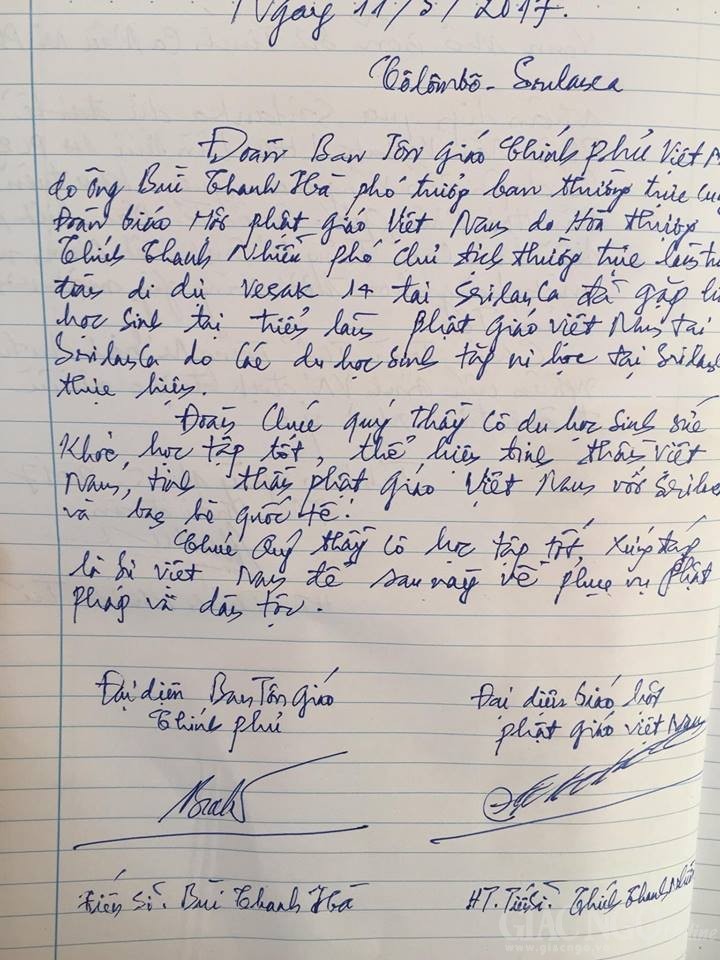 Ngày 11/5/2017.
Côlômbô - Srilasca
Đoàn Ban Tôn giáo Chính phủ Việt
do ông Bùi Thanh Hà phó trưởng ban thường trực
Đoàn Giáo Hội phật giáo Việt Nam do Hòa thượng
Thích Thanh Nhiễu phó chủ tịch thường trực làm
đoàn đi dự Vesak 14 tại SrilasCa đã gặp
học sinh tại triển lãm phật giáo việt Nam tại
SrilasCa do các du học sinh tăng ni học tại
thực hiện.
Đoàn Chúc quý thầy cô du học sinh sức
Khỏe, học tập tốt, thể hiện tinh thần Việt
Nam, tinh thần phật giáo Việt Nam với
và bạn bè quốc tế.
Chúc Quý thầy cô học tập tốt, xứng đáng
là sư việt Nam để sau này về phục vụ phật
pháp và dân tộc.
Đại diện Ban Tôn giáo
Chính phủ
Đại diện Giáo hội
phật giáo việt Nam
Tiến sĩ. Bùi Thanh Hà
HT. Tiến sĩ. Thích Thanh Nhiễu
GIÁC NGỘ online
www.giacngo.vn